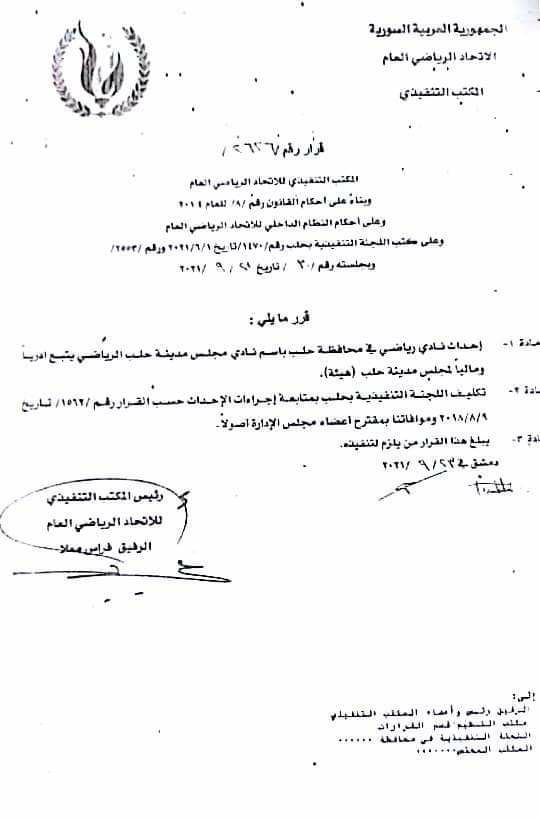 الجمهورية العربية السورية
الاتحاد الرياضي العام
المكتب التنفيذي
قرار رقم /٢٦٢٦/
المكتب التنفيذي للاتحاد الرياضي العام
وبناءً على أحكام القانون رقم /٨/ للعام ٢٠١٤
وعلى أحكام النظام الداخلي للاتحاد الرياضي العام
وعلى كتب اللجنة التنفيذية بحلب رقم /١٤٧٠/ تاريخ ٢٠٢١/٦/١ ورقم /٢٥٥٣/
وبجلسته رقم /٣٠/ تاريخ ٢١/ ٩ /٢٠٢١
قرر ما يلي :
مادة ١- إحداث نادي رياضي في محافظة حلب باسم نادي مجلس مدينة حلب الرياضي يتبع ادرياً
ومالياً لمجلس مدينة حلب (هيئة).
مادة ٢- تكليف اللجنة التنفيذية بحلب بمتابعة إجراءات الإحداث حسب القرار رقم /١٥٦٢/ تاريخ
٢٠١٨/٨/٩ وموافاتنا بمقترح أعضاء مجلس الإدارة أصولاً.
مادة ٣- يبلغ هذا القرار من يلزم لتنفيذه.
دمشق في ٢٣/ ٩ /٢٠٢١
رئيس المكتب التنفيذي
للاتحاد الرياضي العام
الرفيق فراس معلا
إلى:
الرفيق رئيس وأعضاء المكتب التنفيذي
مكتب التنظيم قسم القرارات
اللجنة التنفيذية في محافظة ......
المكتب المختص